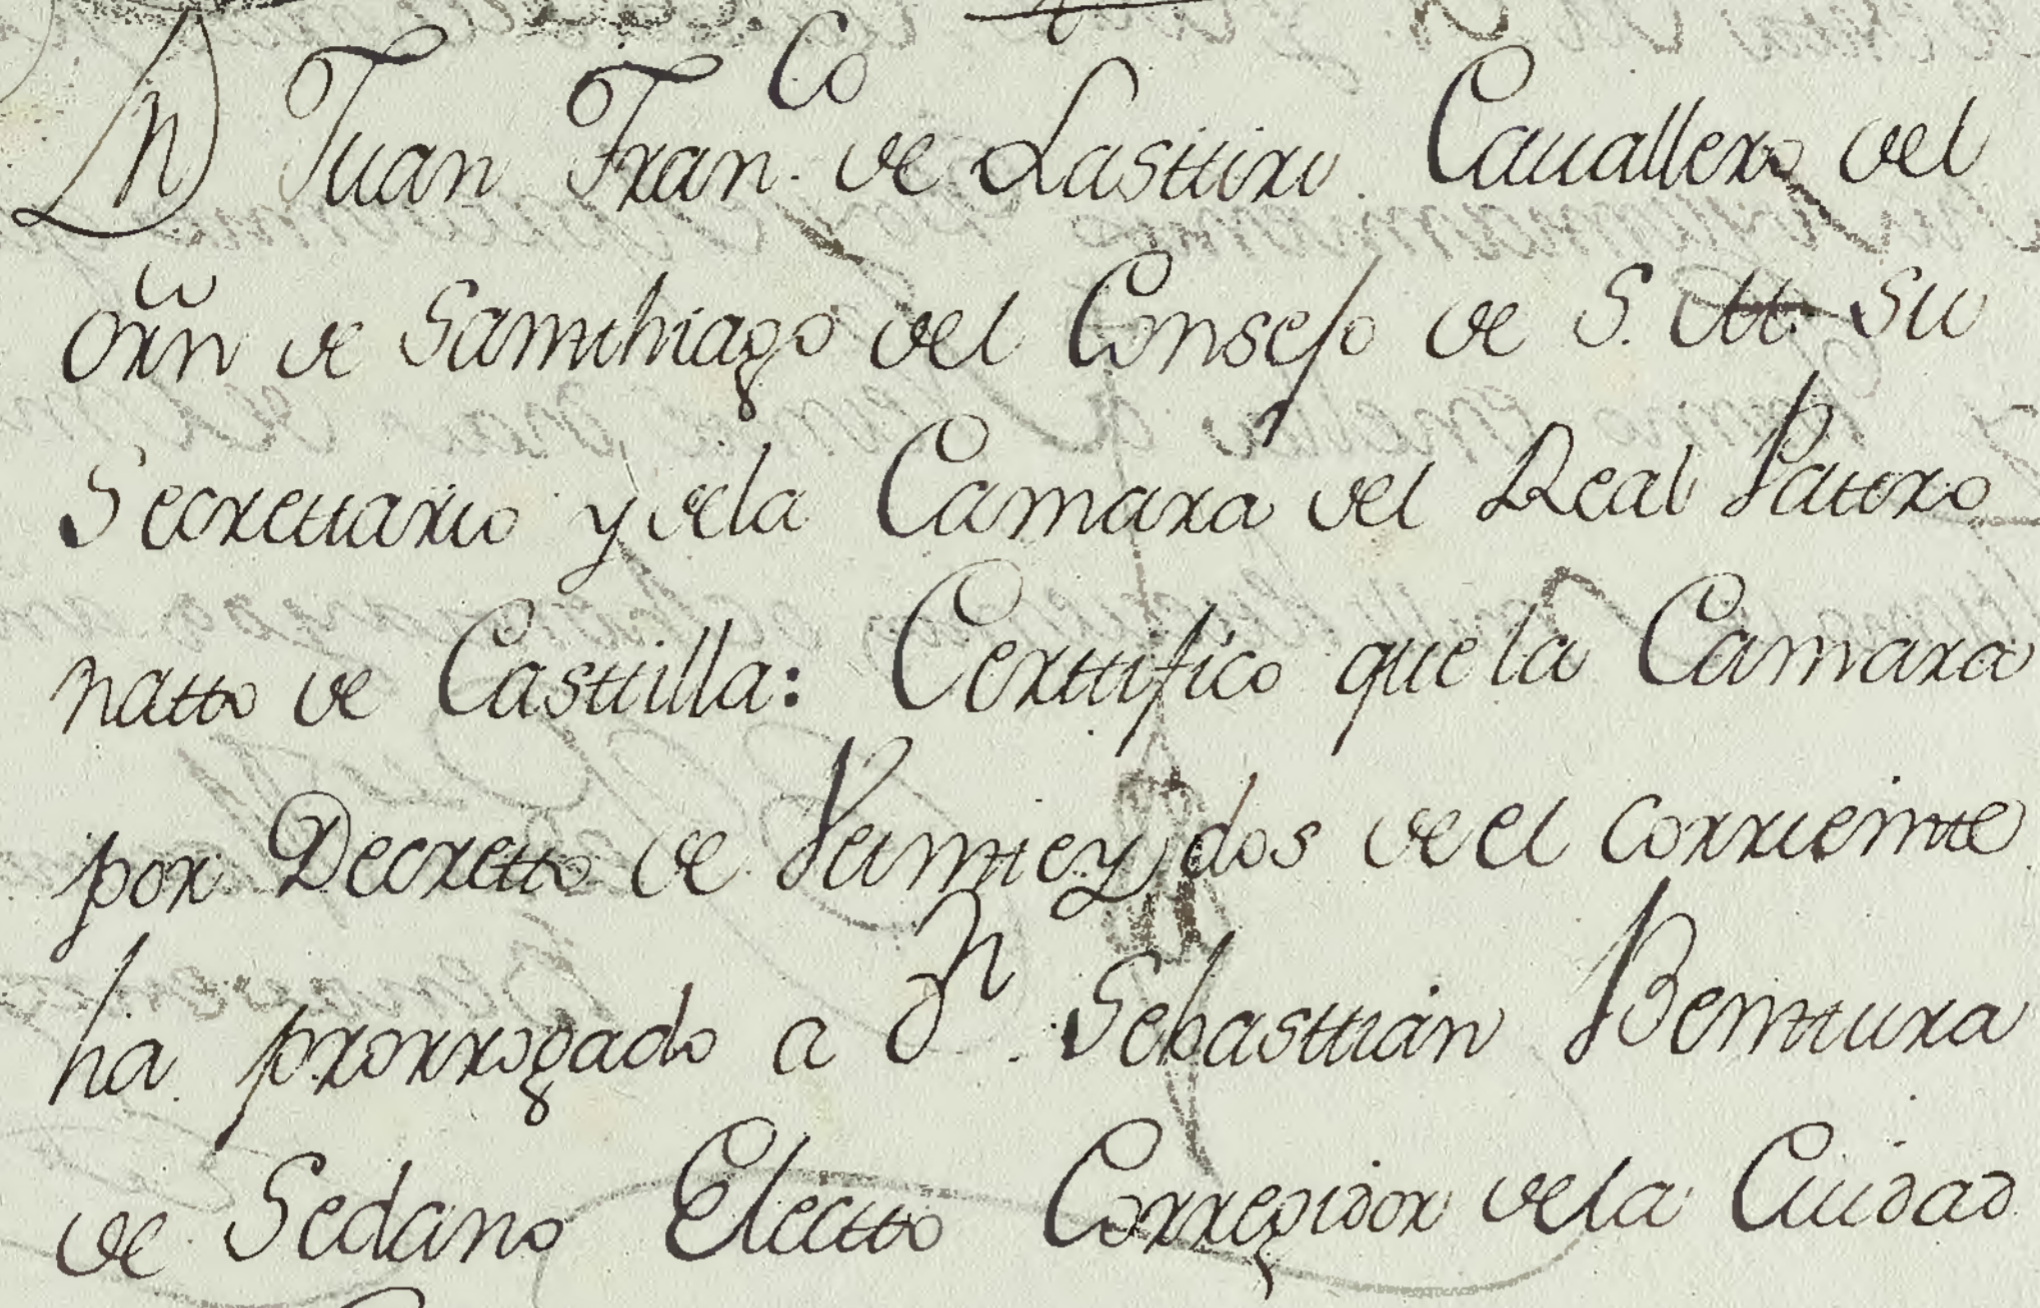 Dn Juan Franco de Lasttiri Cauallero del
orñ de Santthiago del Consejo de S. M. su
Secrettario y dela Camara del Real Pattro
natto de Casttilla: Certtifico que la Camara
por Decretto de Veintte y dos de el corrientte
ha prorrogado a Dn. Sebasttian Benttura
de Sedano Electto Corregidor dela Ciudad